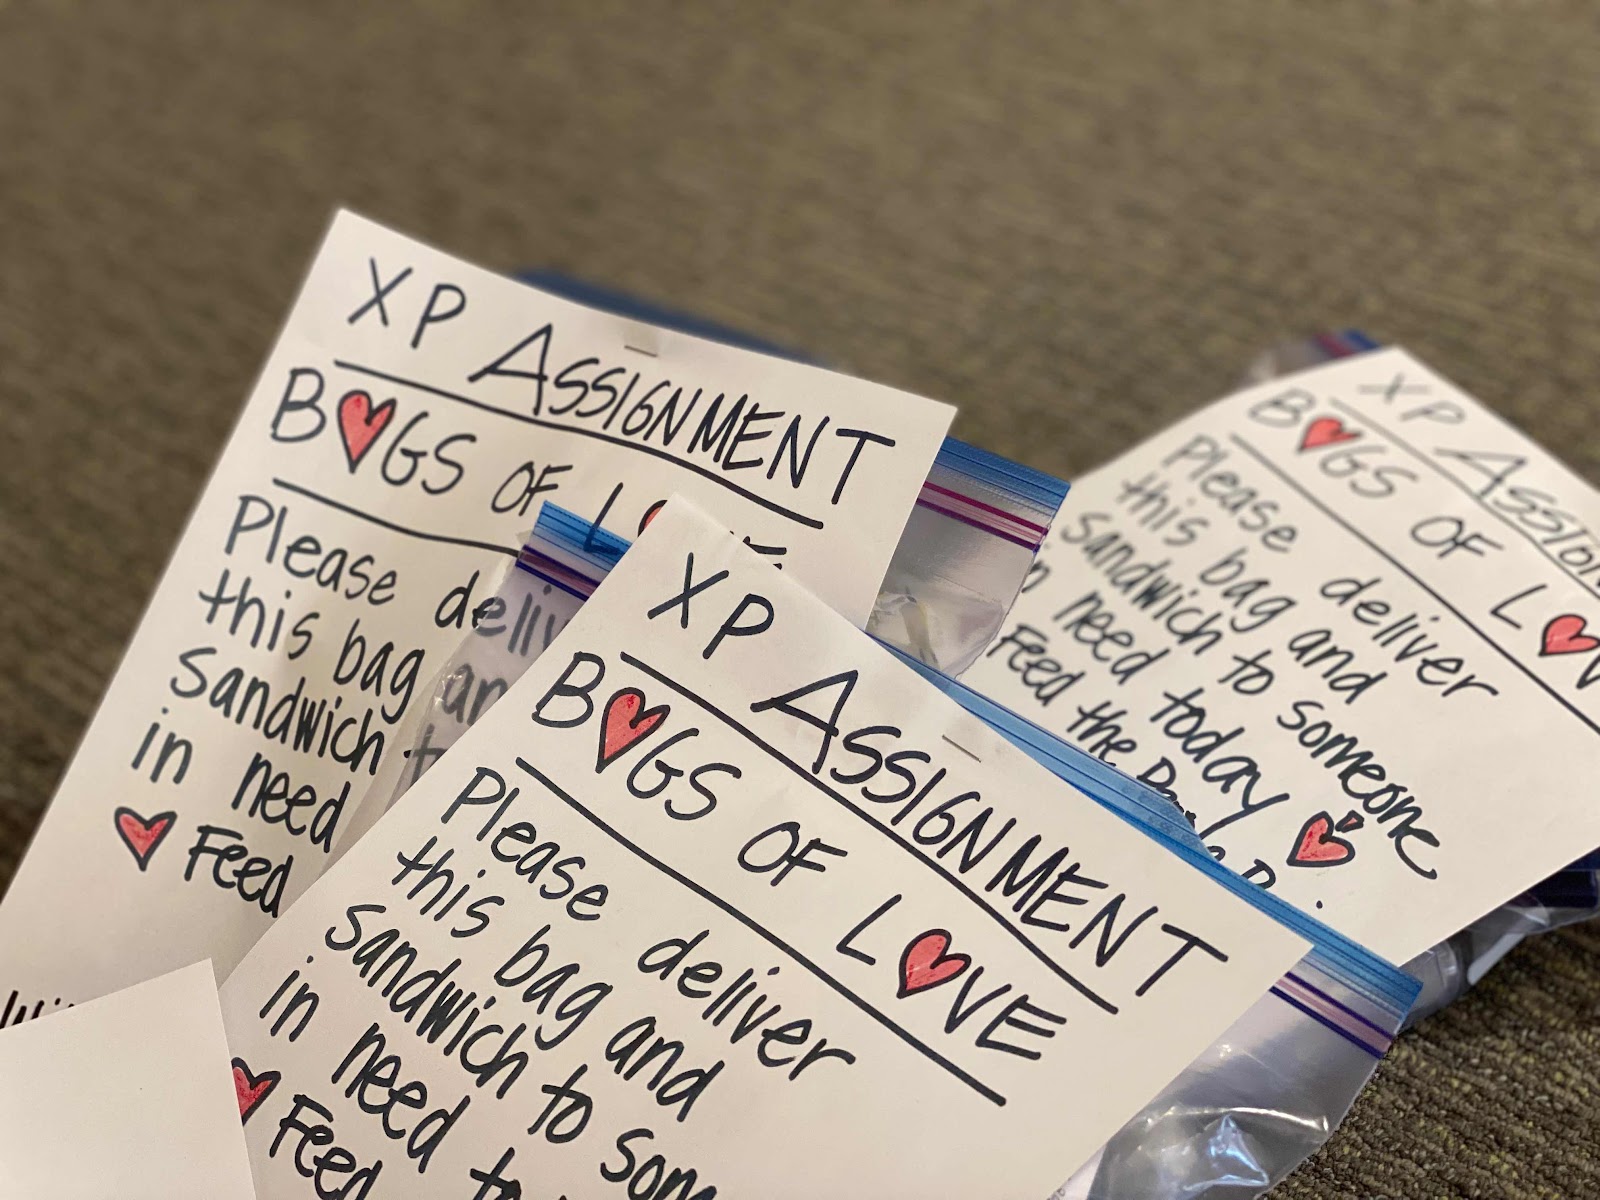 XP ASSIGNMENT
B♥GS OF L
Please deli
this bag an
sandwich t
in need
♥ Feed
XP ASSIGNMENT
B♥GS OF L♥VE
Please deliver
this bag and
sandwich to som
in need
♥ Feed
XP ASSIGN
B♥GS OF L♥V
Please deliver
this bag and
sandwich to someone
in need today ♥
Feed the